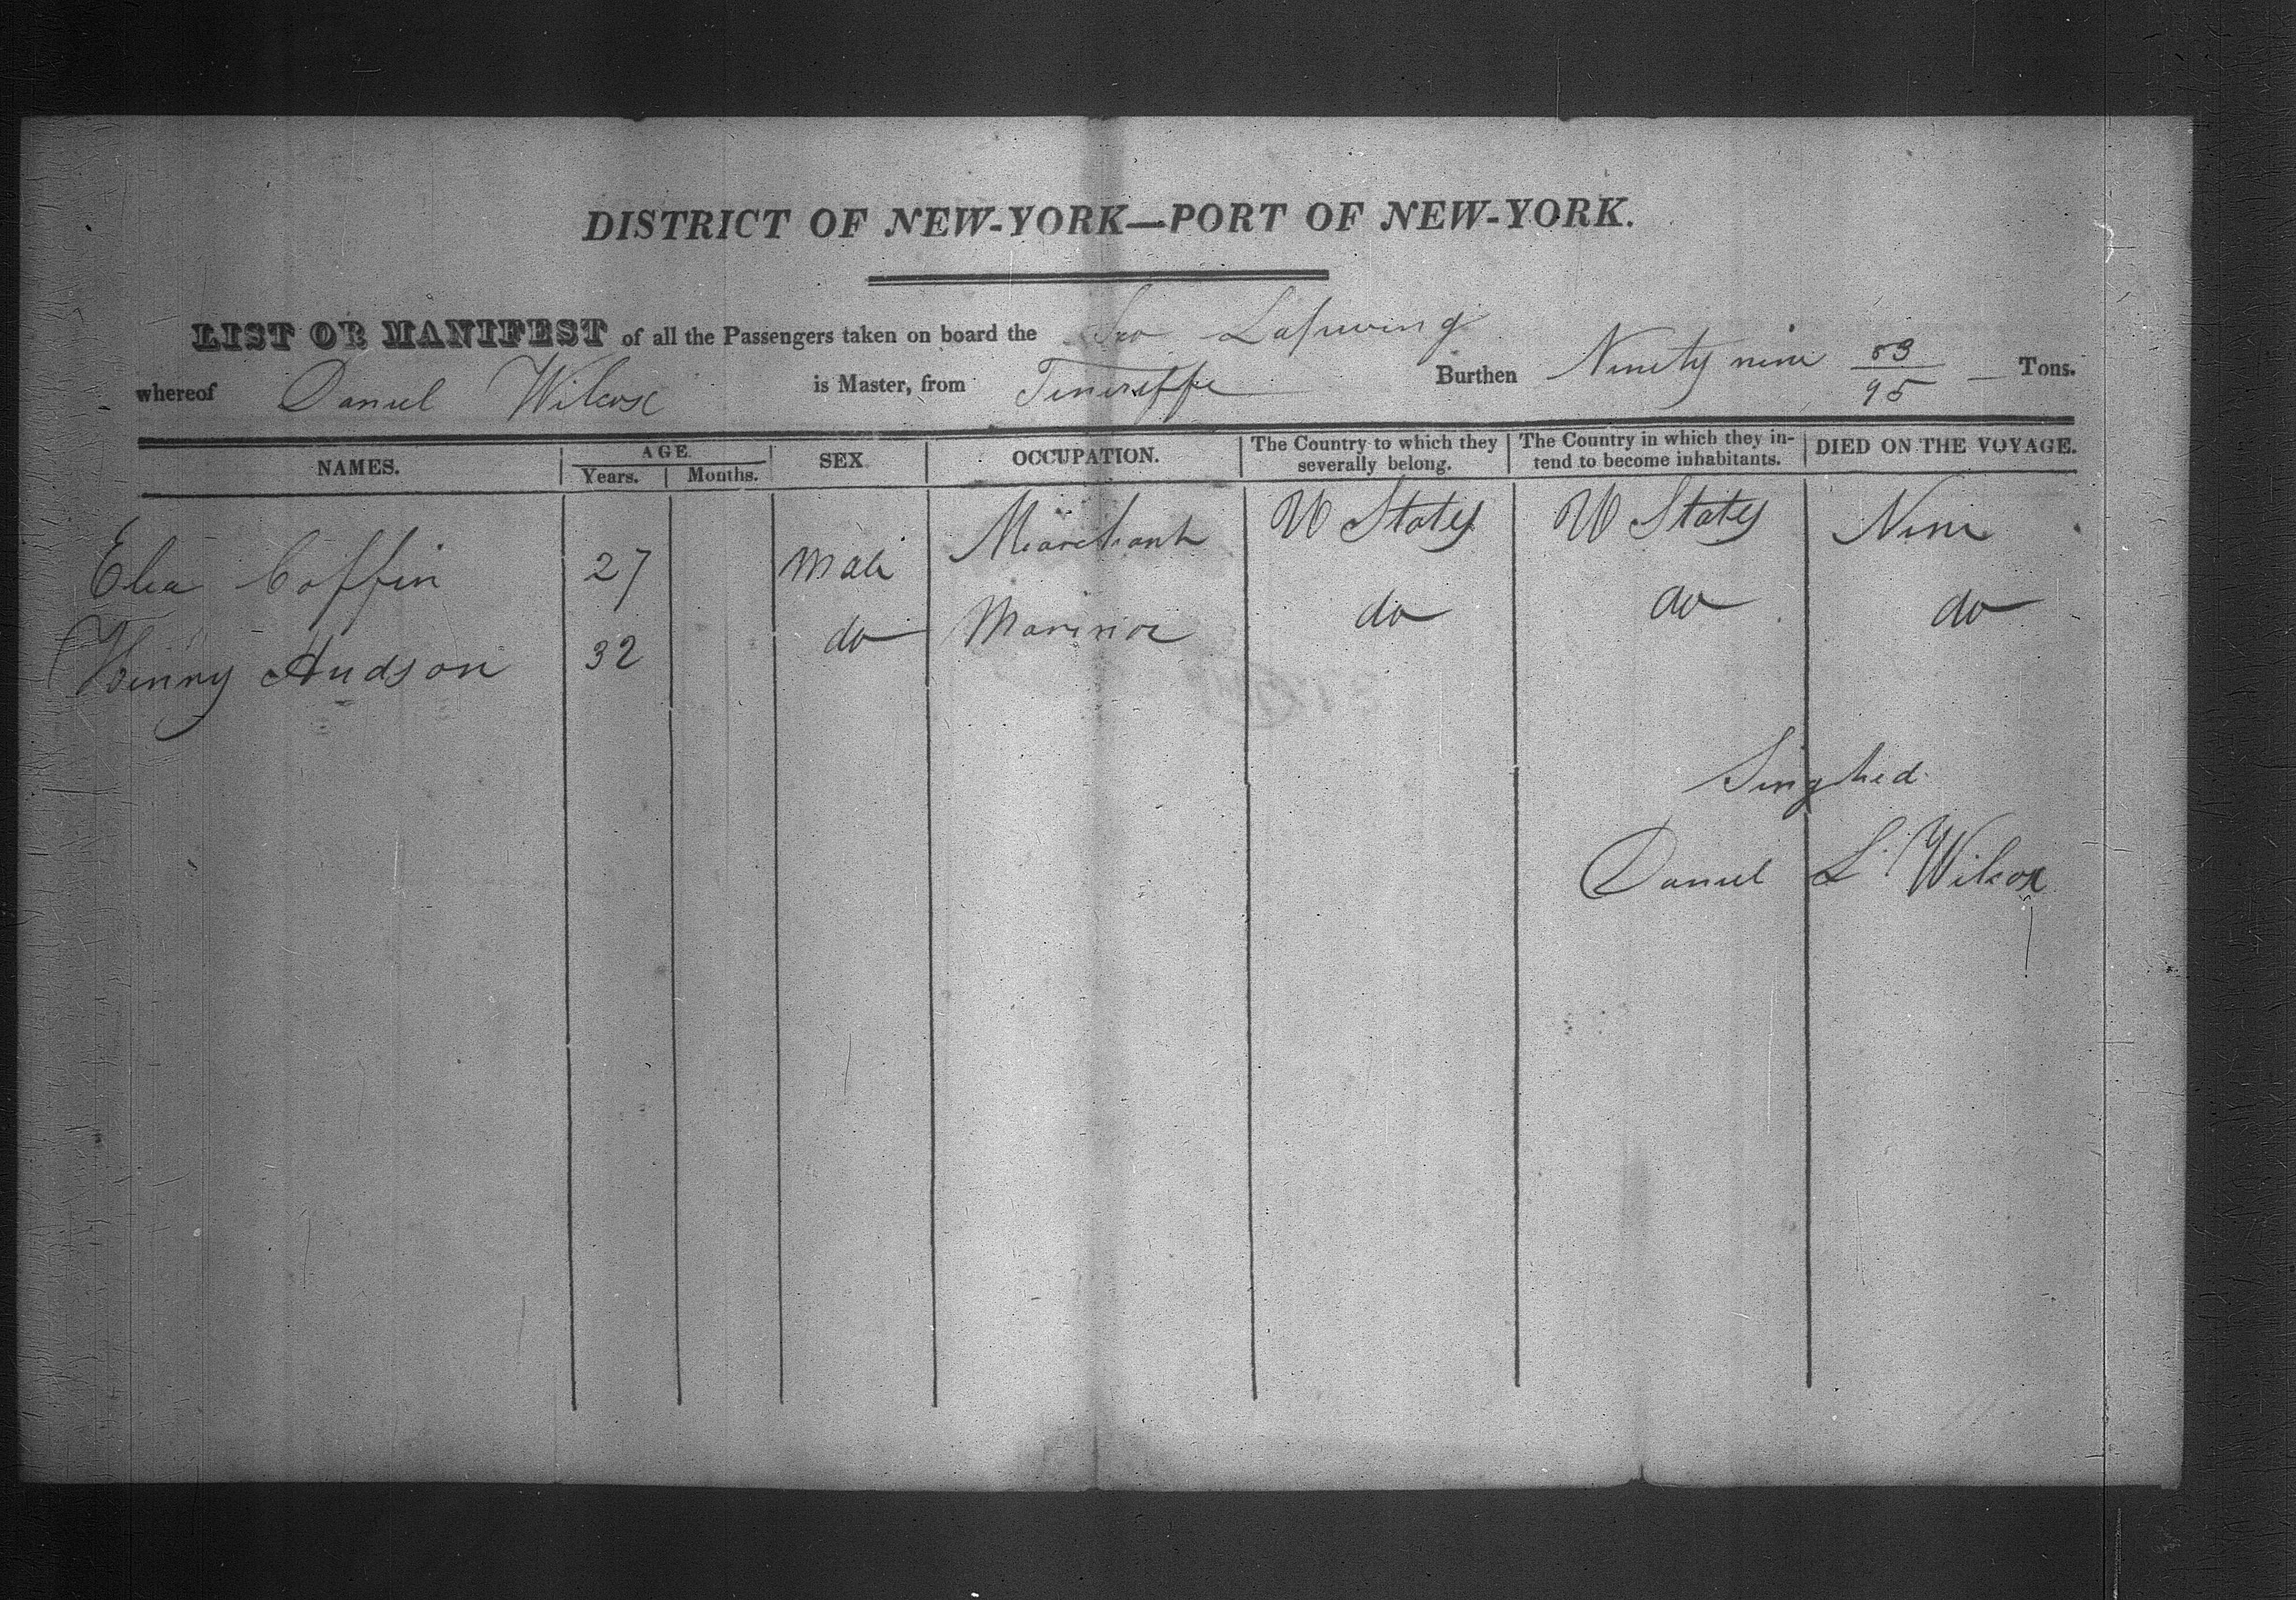 DISTRICT OF NEW-YORK—PORT OF NEW-YORK.
LIST OR MANIFEST of all the Passengers taken on board the Lapwing
whereof Daniel Wilcox is Master, from Teneriffe Burthen Ninety nine 83/95 Tons.
NAMES. AGE. Years. Months. SEX OCCUPATION. The Country to which they severally belong. The Country in which they intend to become inhabitants. DIED ON THE VOYAGE.
Coffin 27 Male Merchant U States U States None
Hudson 32 do Marinor do do do
Singhed
Daniel L Wilcox